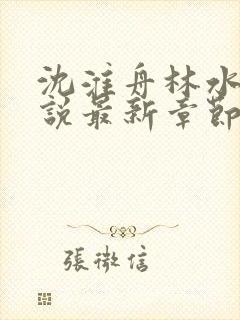 沈淮舟林水
說最新章節
張微信